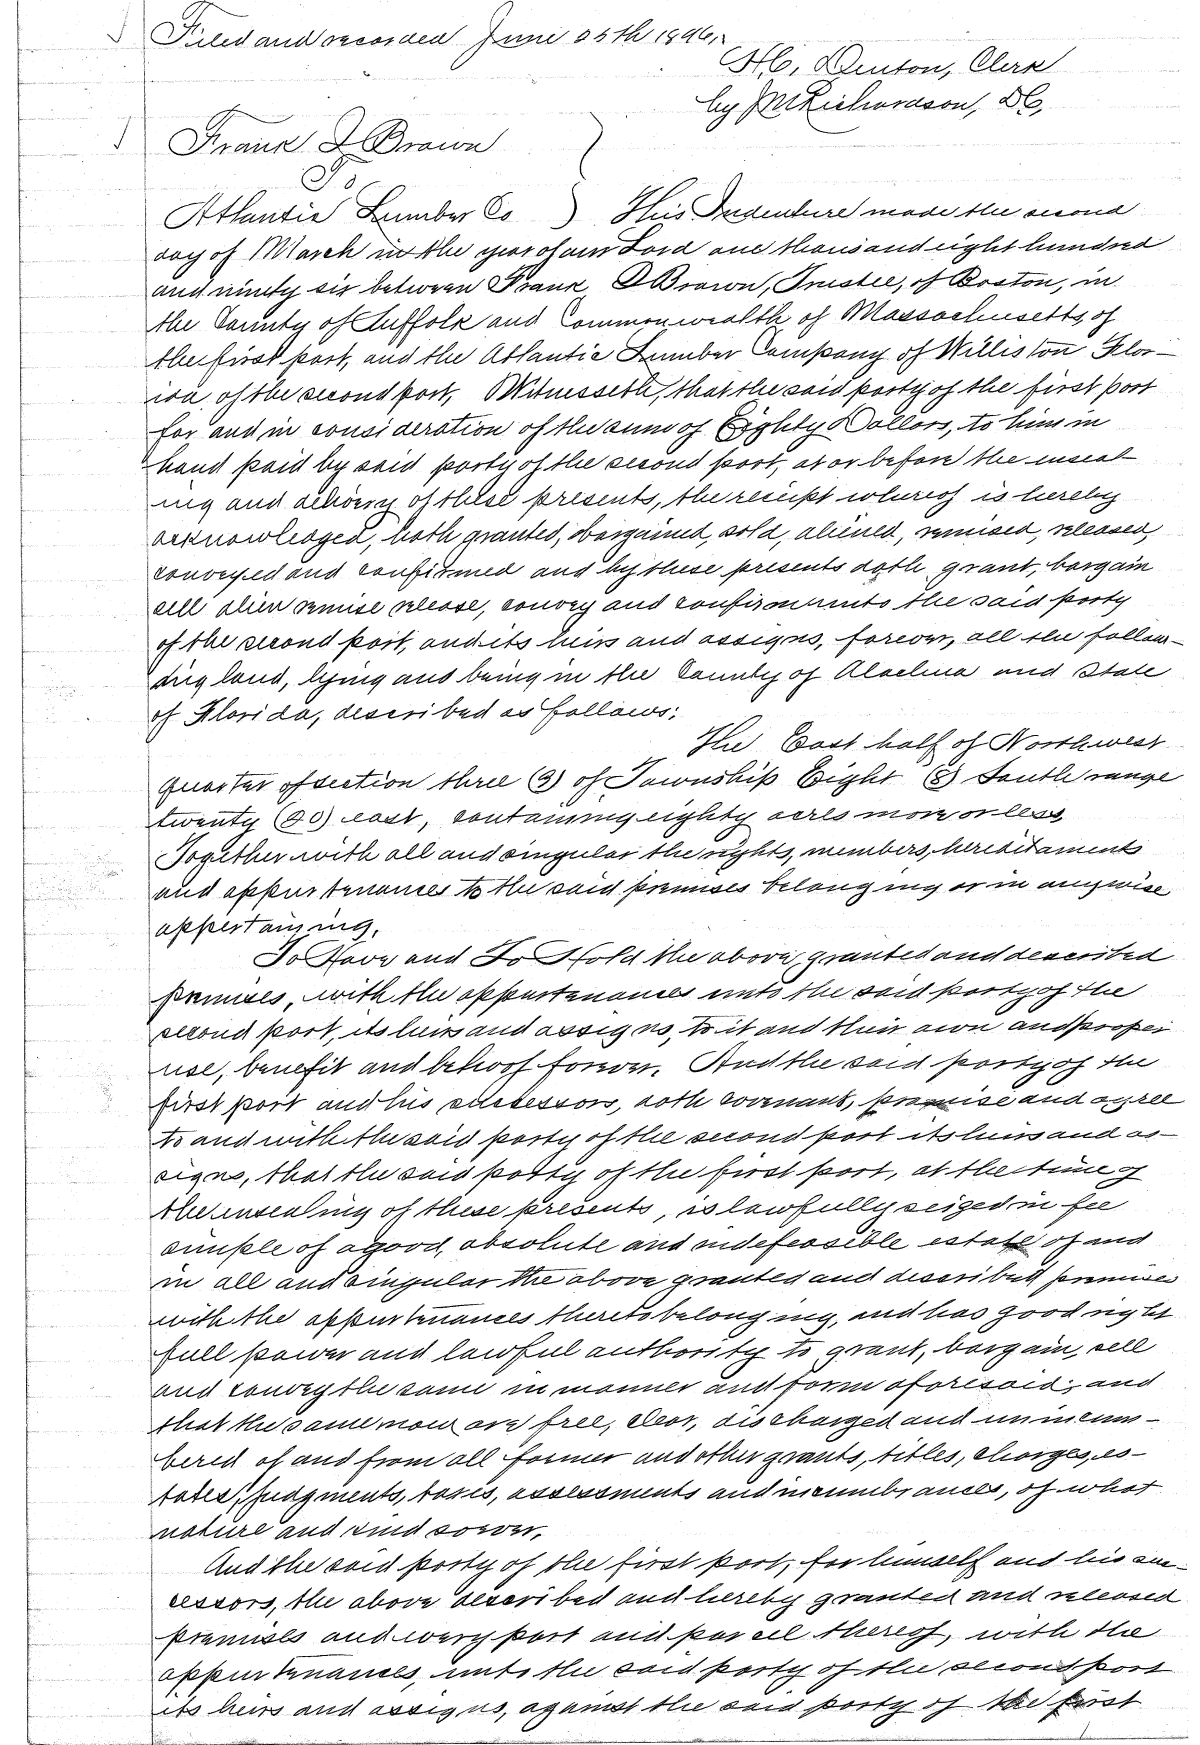 Filed and recorded June 25th 1896,
H.C. Denton, Clerk
by J M Richardson, D.C.
Frank D Brown
To
Atlantic Lumber Co ) This Indenture made the second
day of March in the year of our Lord one thousand eight hundred
and ninety six between Frank D Brown, Trustee, of Boston, in
the County of Suffolk and Commonwealth of Massachusetts, of
the first part, and the Atlantic Lumber Company of Williston Flor-
ida, of the second part, Witnesseth, that the said party of the first part
for and in consideration of the sum of Eighty Dollars, to him in
hand paid by said party of the second part, at or before the enseal-
ing and delivery of these presents, the receipt whereof is hereby
acknowledged, hath granted, bargained, sold, aliened, remised, released,
conveyed and confirmed and by these presents doth grant, bargain
sell alien remise release, convey and confirm unto the said party
of the second part, and its heirs and assigns, forever, all the follow-
ing land, lying and being in the County of Alachua and State
of Florida, described as follows:
The East half of Northwest
quarter of section three (3) of Township Eight (8) South range
twenty (20) east, containing eighty acres more or less,
Together with all and singular the rights, members, hereditaments
and appurtenances to the said premises belonging or in anywise
appertaining.
To Have and To Hold the above granted and described
premises, with the appurtenances unto the said party of the
second part, its heirs and assigns, to it and their own and proper
use, benefit and behoof forever. And the said party of the
first part and his successors, doth covenant, promise and agree
to and with the said party of the second part its heirs and as-
signs, that the said party of the first part, at the time of
the ensealing of these presents, is lawfully seized in fee
simple of a good, absolute and indefeasible estate of and
in all and singular the above granted and described premises
with the appurtenances thereto belonging, and has good right
full power and lawful authority to grant, bargain, sell
and convey the same in manner and form aforesaid; and
that the same now are free, clear, discharged and unincum-
bered of and from all former and other grants, titles, charges, es-
tates, judgments, taxes, assessments and incumbrances, of what
nature and kind soever.
And the said party of the first part, for himself and his suc-
cessors, the above described and hereby granted and released
premises and every part and parcel thereof, with the
appurtenances, unto the said party of the second part
its heirs and assigns, against the said party of the first